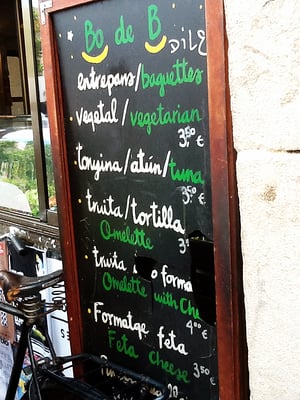 Bo de B
entrepans/baguettes
vegetal/vegetarian
3,50 €
tonyina/atún/tuna
3,50 €
truita/tortilla
Omelette
truita forma
Omelette with Che
4,00 €
Formatge feta
Feta cheese
3,50 €